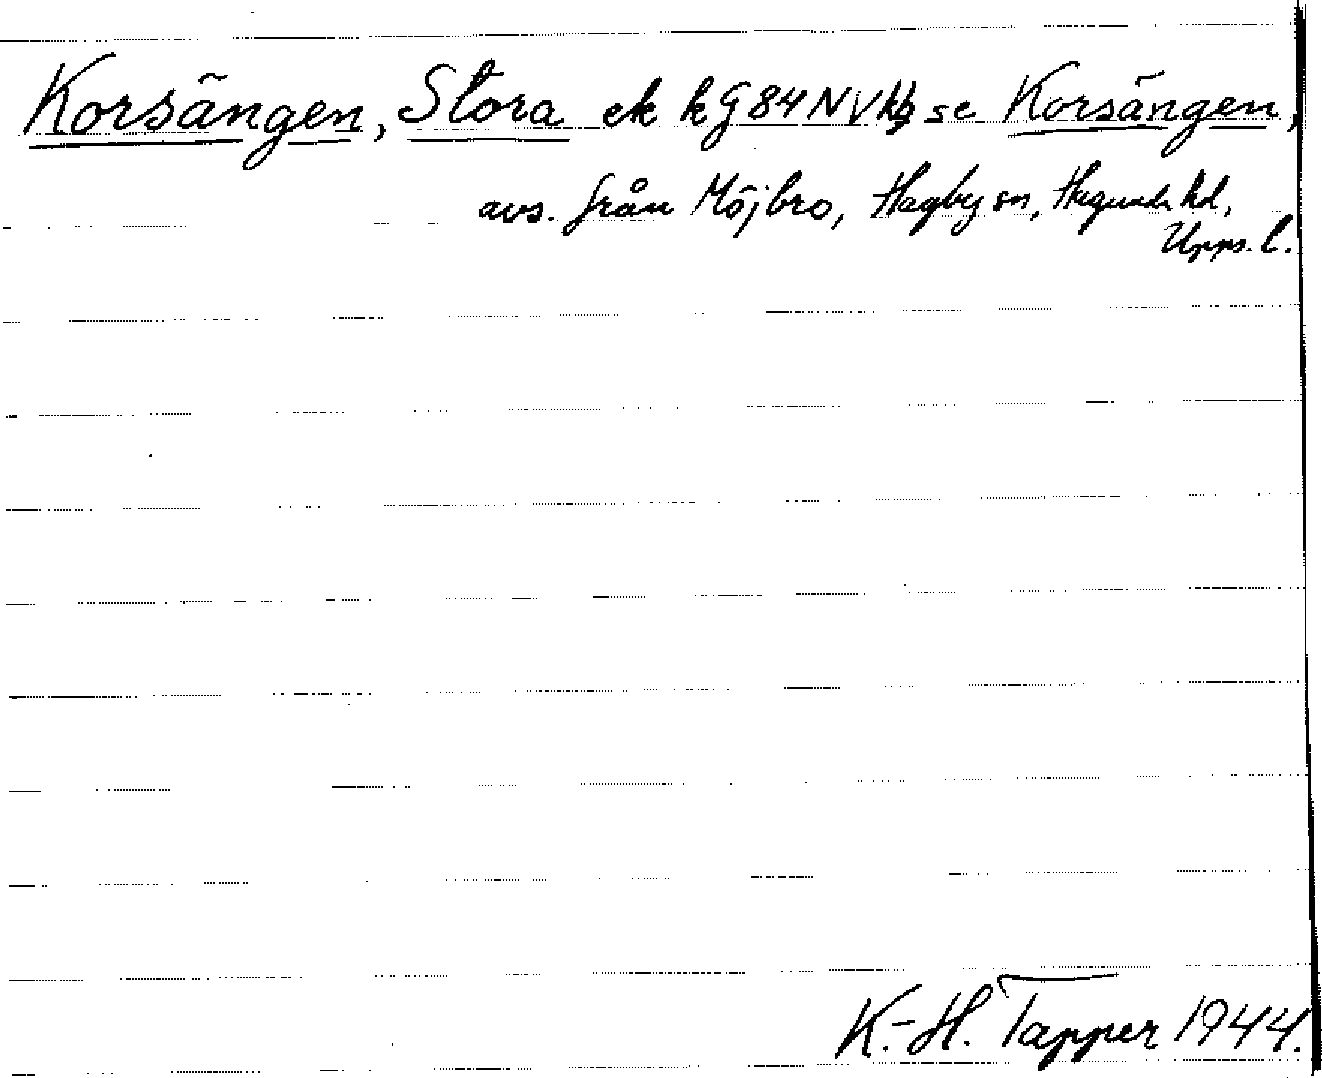 Korsängen, Stora ek kG84NV se Korsängen,
avs. från Möjbro, Hagby sn, Hagunda hd,
Upps. l.
K.-H. Tapper 1944.